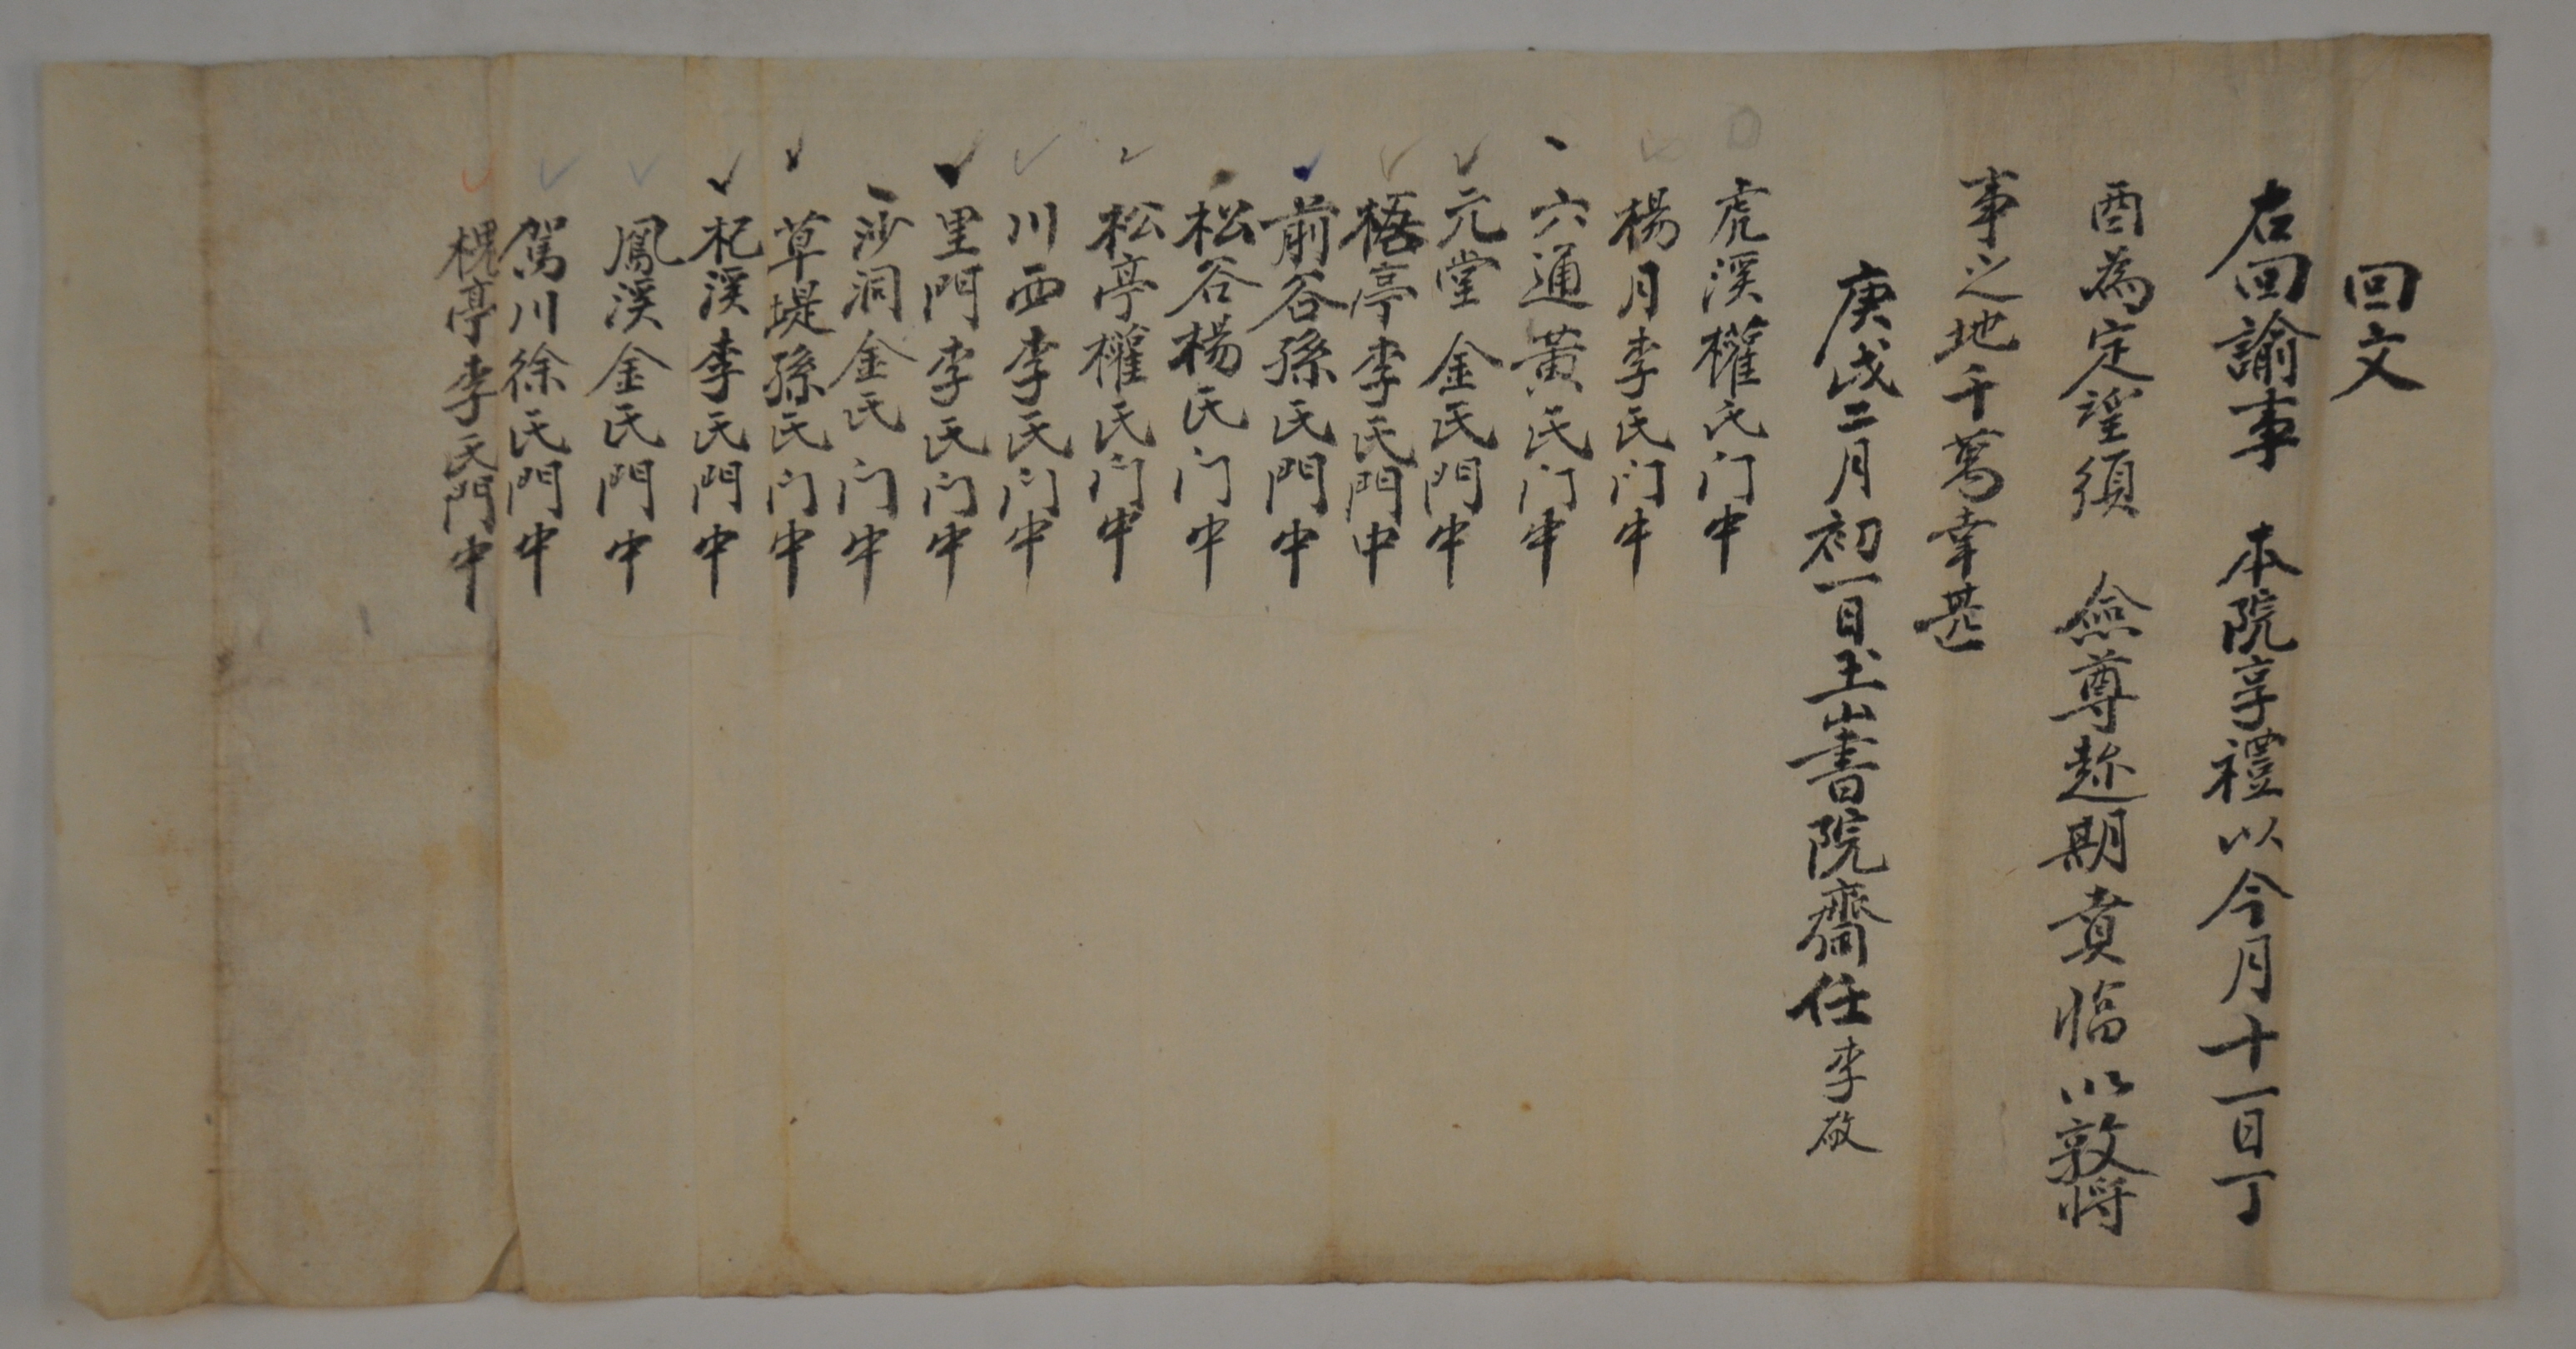 回文
右回諭事 本院享禮以今月十一日丁
酉爲定望須 僉尊趂期賁臨以敦將
事之地千萬幸甚
庚戌二月初一日玉山書院齋任李 敬
虎溪權氏门中
楊月李氏门中
六通黃氏门中
元堂金氏門中
梧亭李氏門中
前谷孫氏門中
松谷楊氏门中
松亭權氏门中
川西李氏门中
里門李氏门中
沙洞金氏门中
草堤孫氏门中
杞溪李氏門中
鳳溪金氏門中
駕川徐氏門中
槐亭李氏門中